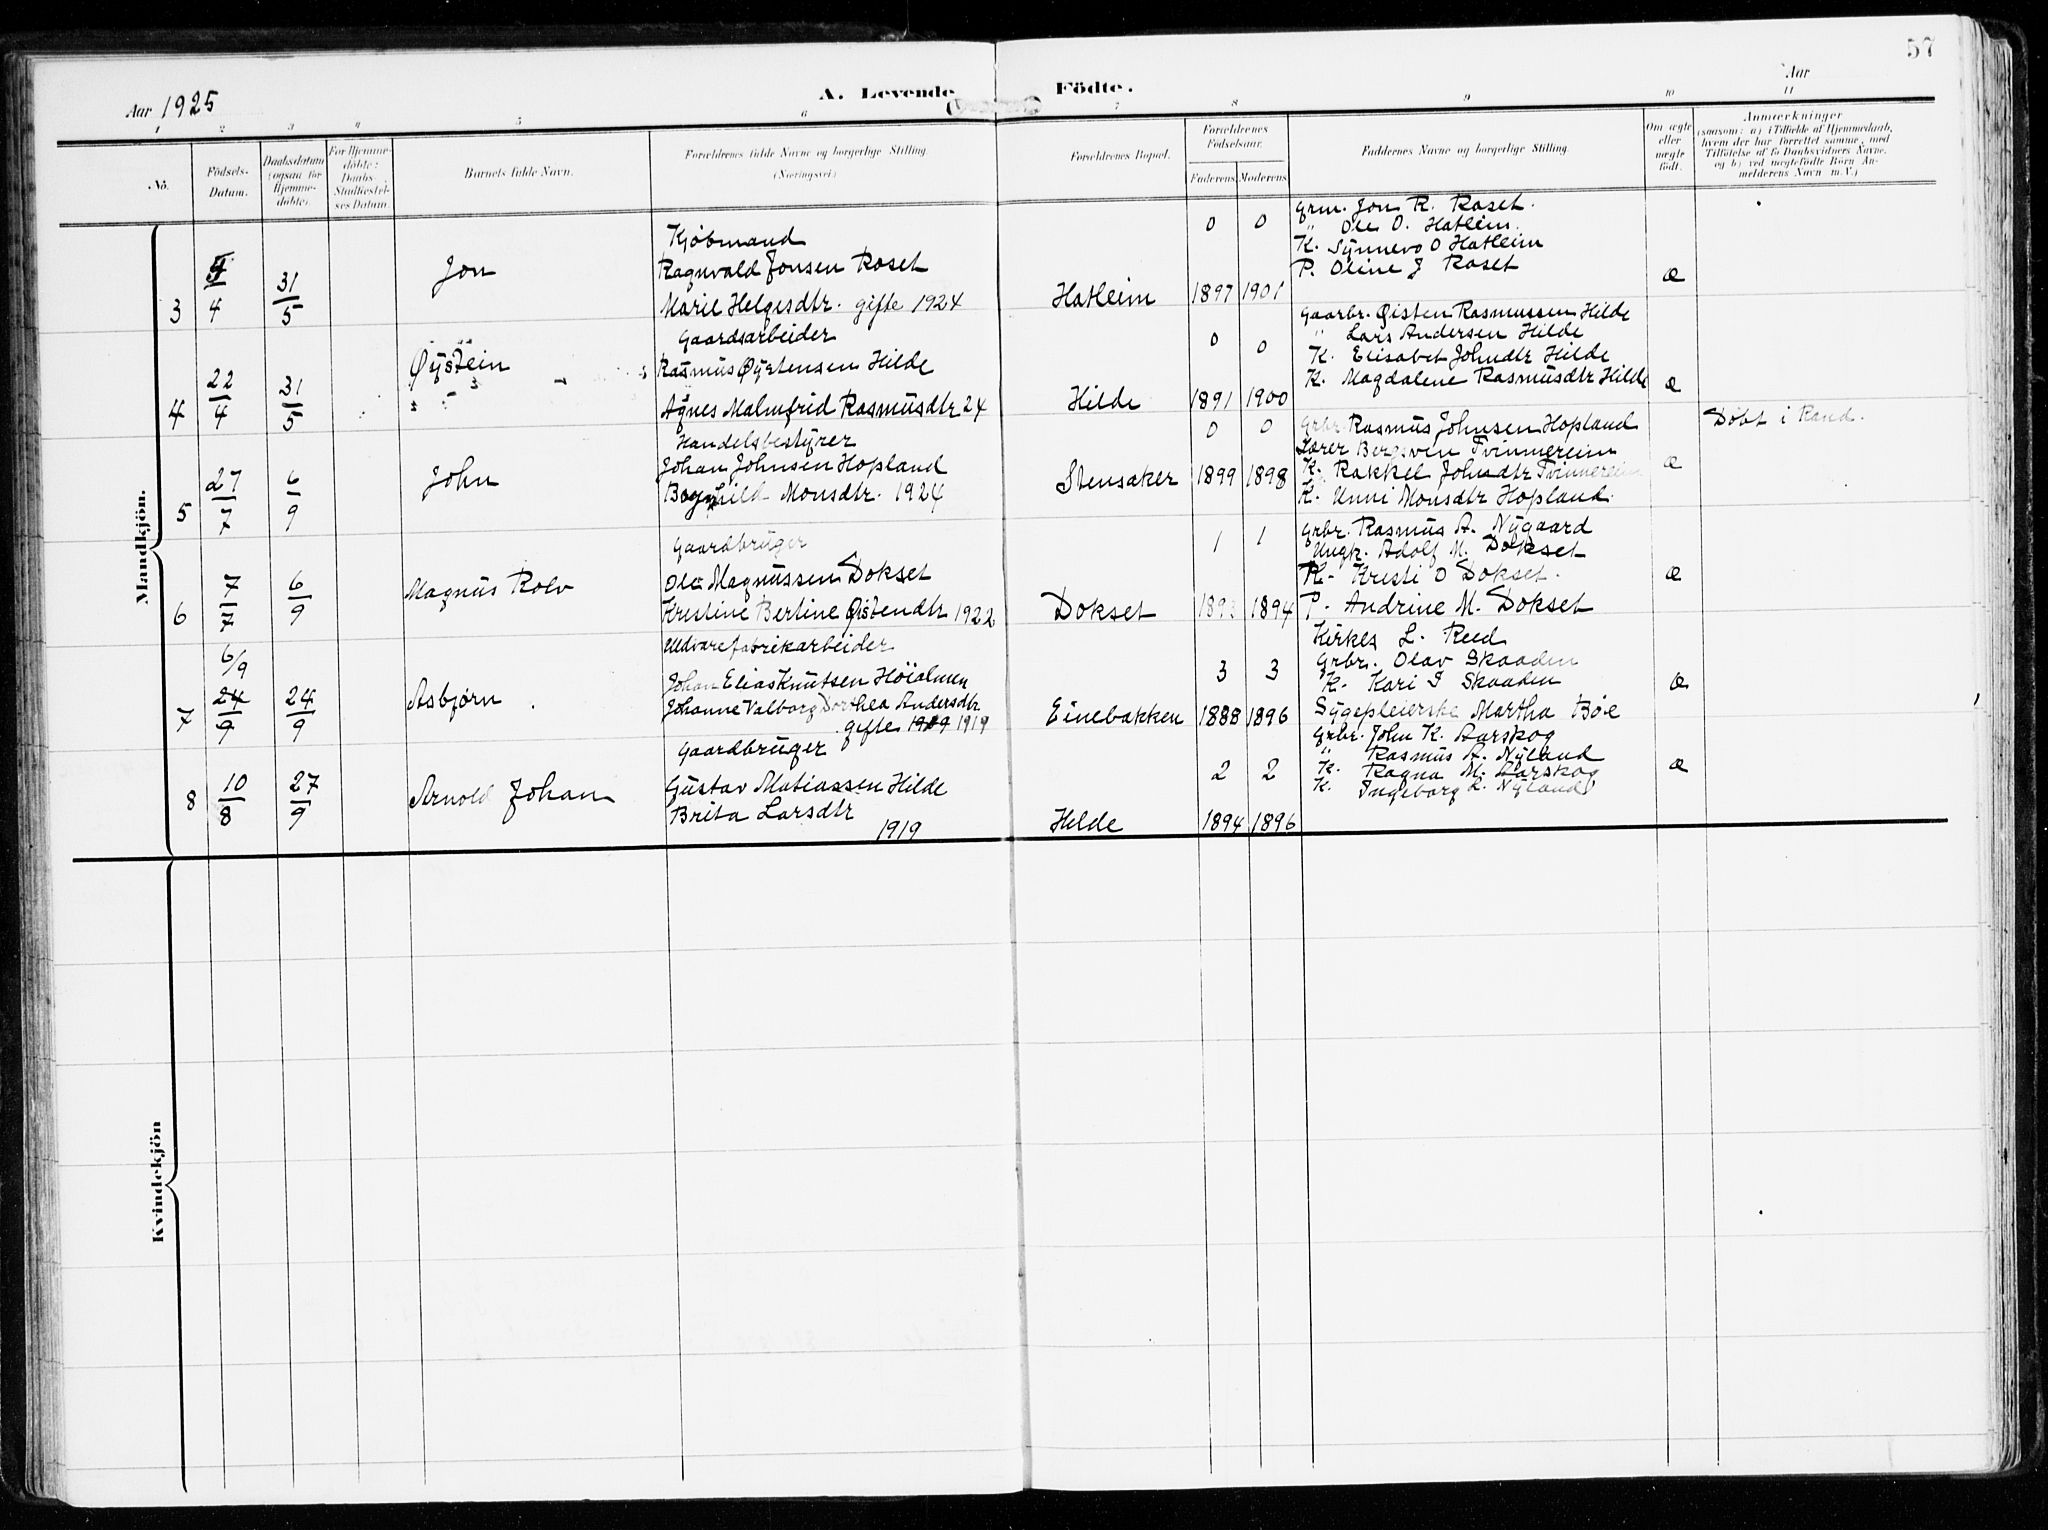 57
Aar 1925
A. Levende
Födte.
Aar
1 2 3 4 5 6 7 8 9 10 11
Nô.
Födsels-
Datum.
Daabsdatum
(ogsaa for
Hjemme-
döbte).
For Hjemme-
döbte:
Daabs-
Stadfæstel-
ses Datum.
Barnets fulde Navn.
Forældrenes fulde Navne og borgerlige Stilling.
(Næringsvei.)
Forældrenes Bopæl.
Forældrenes
Födselsaar.
Faderens
Moderens
Faddernes Navne og borgerlige Stilling.
Om ægte
eller
uægte
födt.
Anmærkninger
(saasom: a) i Tilfælde af Hjemmedaab,
hvem der har forrettet samme, med
Tilföielse af to Daabsvidners Navne.
og b) ved uægtefödte Börn An-
melderens Navn m.V.)
Mandkjön.
3
4
31
5
Jon
Kjøbmand
Ragnvald Jonsen Roset
Marie Helgesdtr. gifte 1924
Hatleim
0 0
1897 1901
Grm. Jon R. Roset.
" Ole O. Hatleim.
K. Synnevo O Hatleim
P. Oline J Roset
Æ
4
22
4
31
5
Øystein
Gaardsarbeider
Rasmus Øystensen Hilde
Agnes Malmfrid Rasmusdtr 24
Hilde
0 0
1891 1900
Gaarbr. Øisten Rasmussen Hilde
" Lars Andersen Hilde
K. Elisabet Johndtr Hilde
K. Magdalene Rasmusdtr Hilde
Æ
5
27
7
6
9
John
Handelsbestyrer
Johan Johnsen Hopland
Bognhild Monsdtr. 1924
Stensaker
0 0
1899 1898
Grbr. Rasmus Johnsen Hopland
Lærer Bergsvein Tvinnereim
K. Rakkel Johndtr Tvinnereim
K. Unni Monsdtr Hopland.
Æ
Døbt i Rand.
6
7
7
6
9
Magnus Rolv
Gaardbruger
Ole Magnussen Dokset
Kristine Bertine Øistendtr 1922
Dokset
1 1
1893 1894
Grbr. Rasmus A. Nygaard
Ungk. Adolf M. Dokset
K. Kristi O Dokset.
P. Andrine M. Dokset
Æ
7
6/9
24
9
24
9
Asbjørn
Uldvarefabrikarbeider
Johan Elias Knutsen Höialmen
Johanne Valborg Dorthea Andersdtr
gifte 1919
Einebakken
3 3
1888 1896
Kirkes L. Reed
Grbr. Olav Skaaden
K. Kari I Skaaden
Sygepleierske Martha Bøe
Æ
8
10
8
27
9
Arnold Johan
Gaardbruger
Gustav Matiassen Hilde
Brita Larsdtr
1919
Hilde
2 2
1894 1896
Grbr. John K. Aarskog
" Rasmus A. Nyland
K. Ragna M. Aarskog
K. Ingeborg L. Nyland
Æ
Kvindekjön